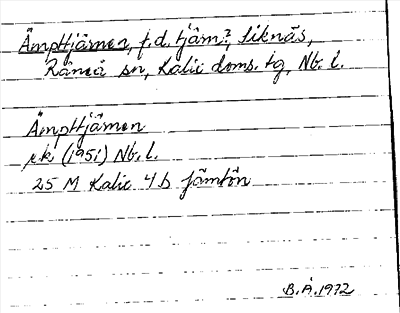 Ämpttjärnen, f.d. tjärn?, Siknäs,
Råneå sn, Kalix doms. tg, Nb. l.
Ämpttjärnen
ek (1951) Nb. l.
25 M Kalix 4 b Jämtön
B.Å. 1972